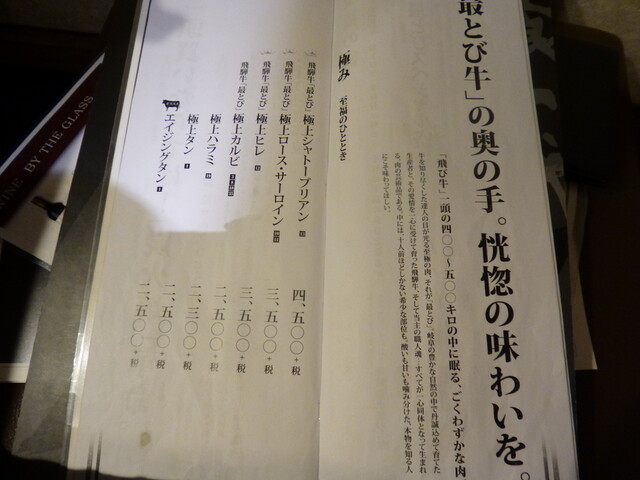 最とび牛」の奥の手。恍惚の味わいを。
「飛び牛」一頭の四〇〇〜五〇〇キロの中に眠る、ごくわずかな肉
牛を知り尽くした達人の目が光る至極の肉、それが「最とび」。岐阜の豊かな自然の中で丹誠込めて育てた
生産者と、その愛情を一心に受けて育った飛騨牛、そして当主の職人魂―すべてが一心同体となって生まれ
る、肉の芸術品である。中には、十人前ほどしかない希少な部位も。酸いも甘いも噛み分けた、本物を知る人
にこそ味わってほしい。
極み 至福のひととき
飛騨牛「最とび」極上シャトーブリアン 四、五〇〇+税
飛騨牛「最とび」極上ロース・サーロイン 三、五〇〇+税
飛騨牛「最とび」極上ヒレ 三、五〇〇+税
飛騨牛「最とび」極上カルビ 二、五〇〇+税
極上ハラミ 二、三〇〇+税
極上タン 二、五〇〇+税
エイジングタン 二、五〇〇+税
WINE BY THE GLASS